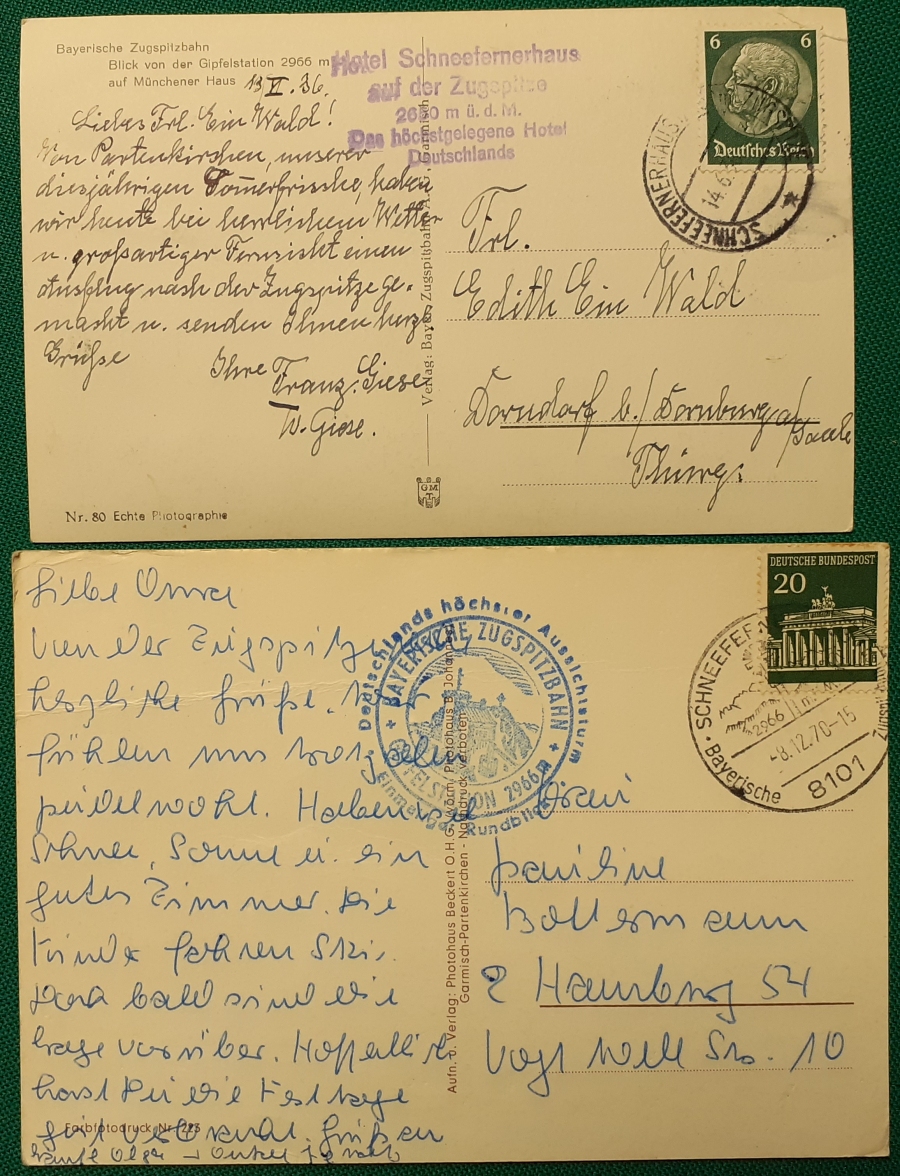 Bayerische Zugspitzbahn
Blick von der Gipfelstation 2966 m
auf Münchener Haus
13.VI.36.
Hotel Schneefernerhaus
auf der Zugspitze
2650 m ü. d. M.
Das höchstgelegene Hotel
Deutschlands
6 6
Deutsches Reich
SCHNEEFERNERHAUS
14.6.
Liebes Frl. Ein Wald!
Von Partenkirchen, unserer
diesjährigen Somerfrische, haben
wir heute bei herrlichem Wetter
u. grossartiger Fernsicht einen
Ausflug nach der Zugspitze ge-
macht u. senden Ihnen herzl.
Grüße
Ihre Franz. Giese
W. Giese.
Verlag: Bayer. Zugspitzbahn A.G., Garmisch
Frl.
Edith Ein Wald
Dorndorf b./Dornburg a/
Saale
Thürg:
GMTE
Nr. 80 Echte Photographie
Liebe Oma
Von der Zugspitze
herzliche Grüße. Wir
fühlen uns
pudelwohl. Haben
Schnee, Sonne u. ein
gutes Zimmer. Die
Kinder fahren Ski.
Doch bald sind die
Tage vorüber. Hoffentlich
hast Du die Festtage
gut
Deutschlands höchster Aussichtsturm
BAYERISCHE ZUGSPITZBAHN
GIPFELSTATION 2966 m
Einmaliger Rundblick
DEUTSCHE BUNDESPOST
20
SCHNEEFERNER
2966 m
-8.12.70-15
8101
Bayerische
Aufn. u. Verlag: Photohaus Beckert O.H.G. vorm. Photohaus B. Johannes
Garmisch-Partenkirchen - Nachdruck verboten
Frau
Pauline
2 Hamburg 54
Vogt Str. 10
Farbfotodruck Nr. 223